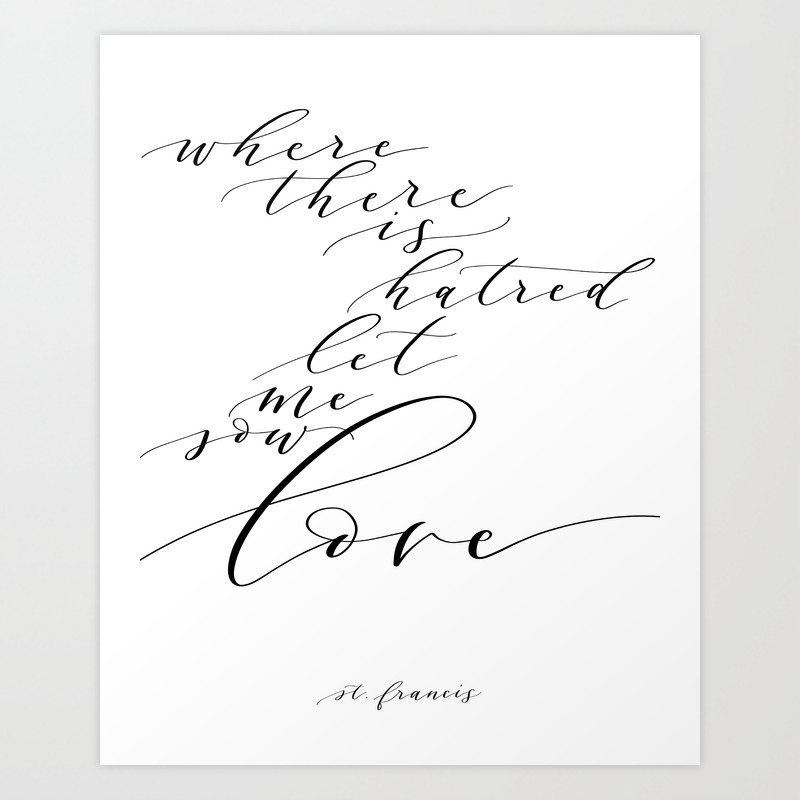 where
there
is
hatred
let
me
sow
love
st. francis